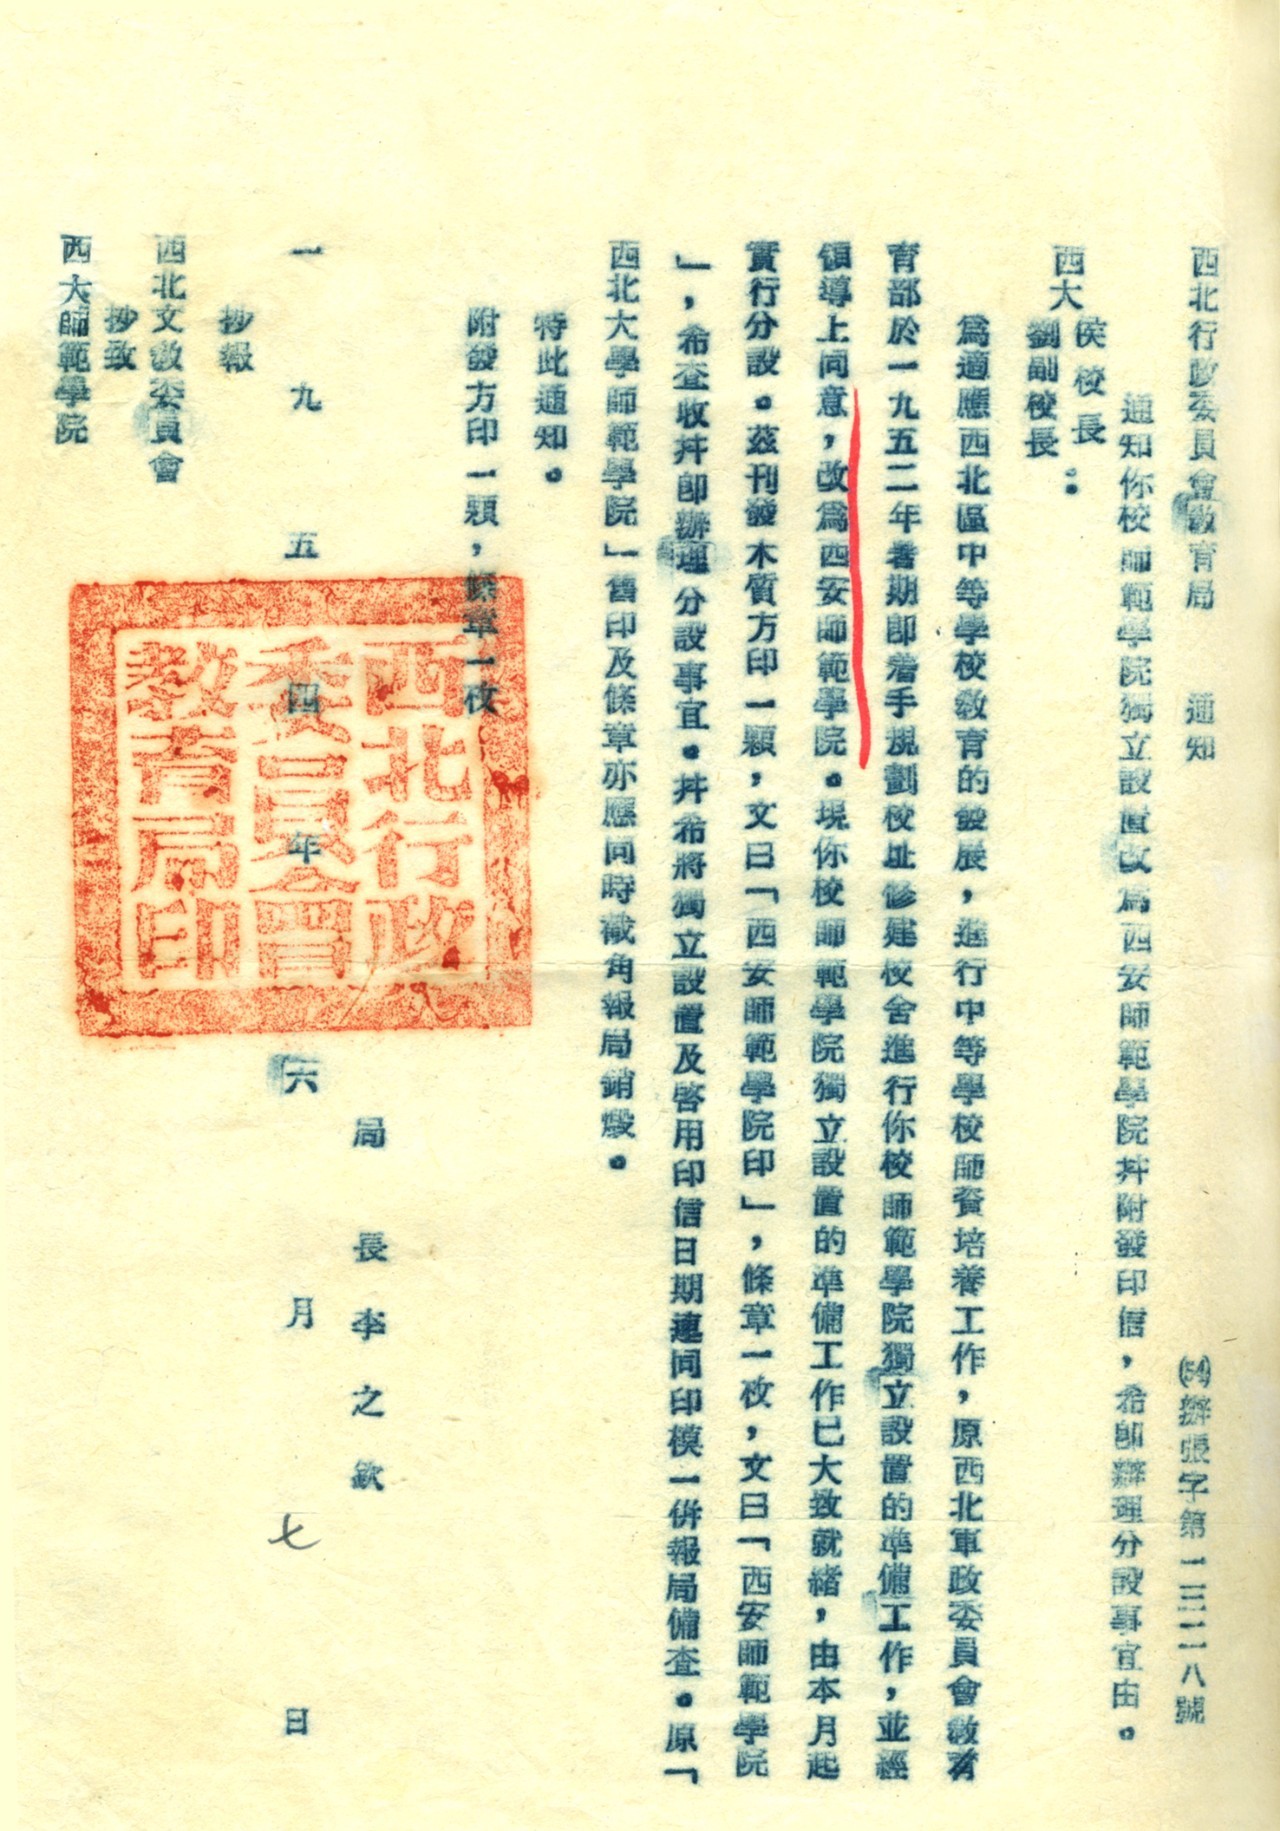 西北行政委員會教育局　通知
(54)辦張字第一三二一八號
通知你校師範學院獨立設置改爲西安師範學院并附發印信，希卽辦理分設事宜由。
西大
侯校長
劉副校長：
爲適應西北區中等學校教育的發展，進行中等學校師資培養工作，原西北軍政委員會教育
育部於一九五二年暑期卽着手規劃校址修建校舍進行你校師範學院獨立設置的準備工作，並經
領導上同意，改爲西安師範學院。現你校師範學院獨立設置的準備工作已大致就緒，由本月起
實行分設。茲刊發木質方印一顆，文曰「西安師範學院印」，條章一枚，文曰「西安師範學院
」，希查收幷卽辦理分設事宜。幷希將獨立設置及啓用印信日期連同印模一併報局備查。原「
西北大學師範學院」舊印及條章亦應同時截角報局銷燬。
特此通知。
附發方印一顆，條章一枚
局長李之欽
一九五四年六月七日
抄報
西北文教委員會
抄致
西大師範學院
西北行政
委員會
教育局印